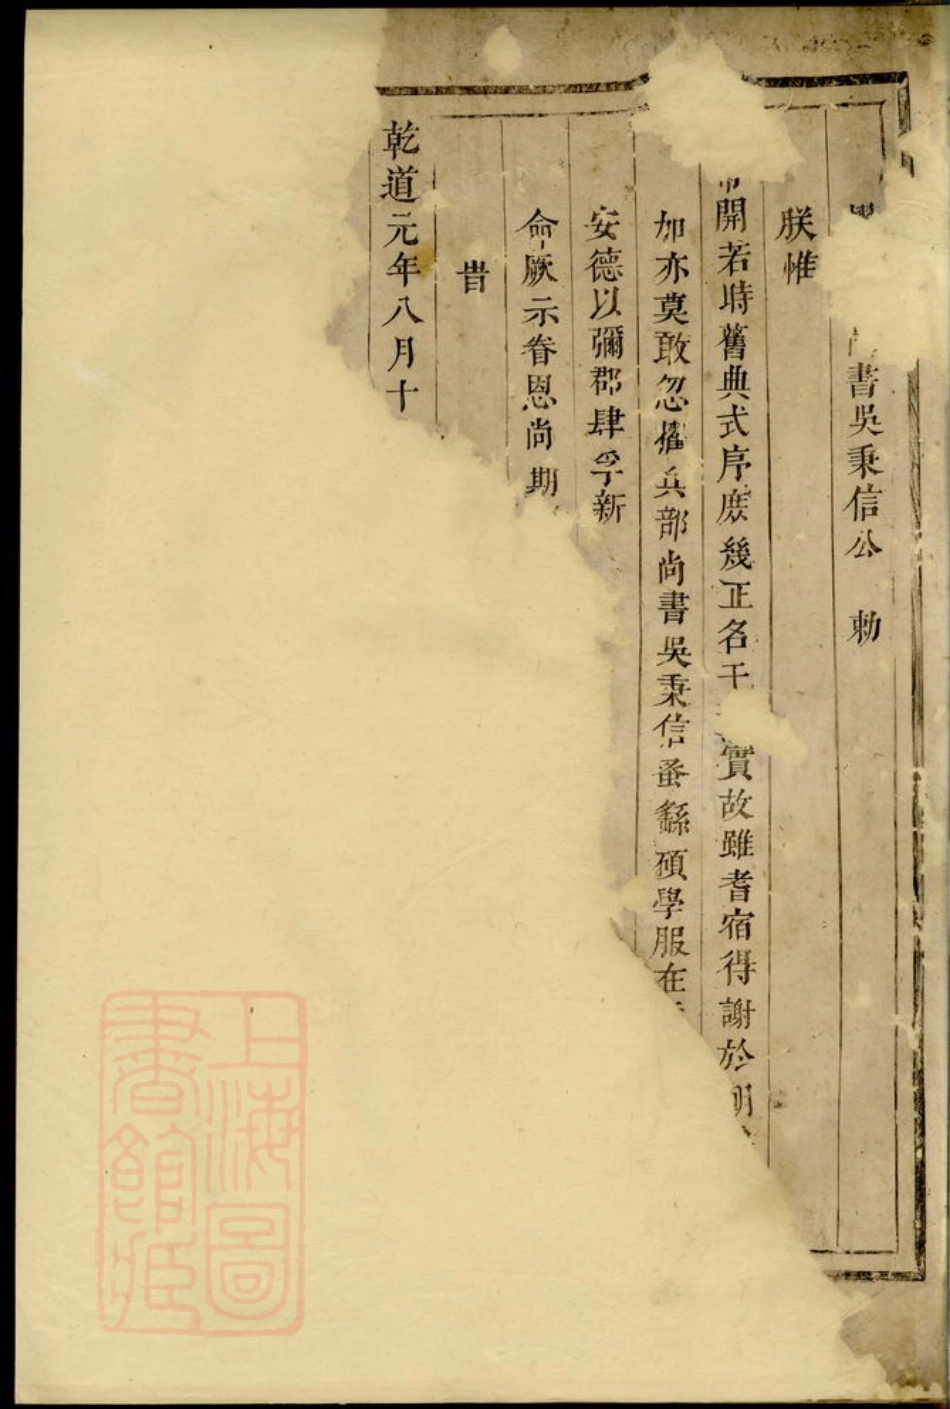 書吳秉信公 勅
朕惟
開若時舊典式序庶幾正名干實故雖耆宿得謝於明
加亦莫敢忽擢兵部尚書吳秉信蚤繇碩學服在
安德以彌郡肆孚新
命厥示眷恩尚期
昔
乾道元年八月十
上海圖
書館藏